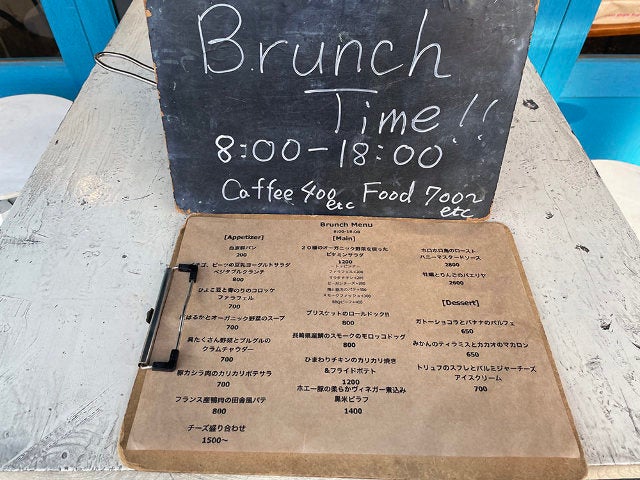 Brunch
Time!!
8:00-18:00
Caffee 400 etc Food 700~ etc
Brunch Menu
8:00-18:00
[Appetizer]
自家製パン
200
ビーツの豆乳ヨーグルトサラダ
ベジタブルクランチ
800
ひよこ豆と青のりのコロッケ
ファラフェル
700
はるかとオーガニック野菜のスープ
700
具たくさん野菜とブルグルの
クラムチャウダー
700
豚カシラ肉のカリカリポテサラ
700
フランス産鴨肉の田舎風パテ
800
チーズ盛り合わせ
1500~
[Main]
20種のオーガニック野菜を使った
ビタミンサラダ
1200
トッピング
ファラフェル+300
ブリスケットのロールドッグ!!
800
長崎県産鯖のスモークのモロッコドッグ
800
ひまわりチキンのカリカリ焼き
&フライドポテト
1200
ホエー豚の柔らかヴィネガー煮込み
黒米ピラフ
1400
ホロホロ鳥のロースト
ハニーマスタードソース
2800
牡蠣とりんごのパエリヤ
2600
[Dessert]
ガトーショコラとバナナのパルフェ
650
みかんのティラミスとカカオのマカロン
650
トリュフのスフレとパルミジャーチーズ
アイスクリーム
700